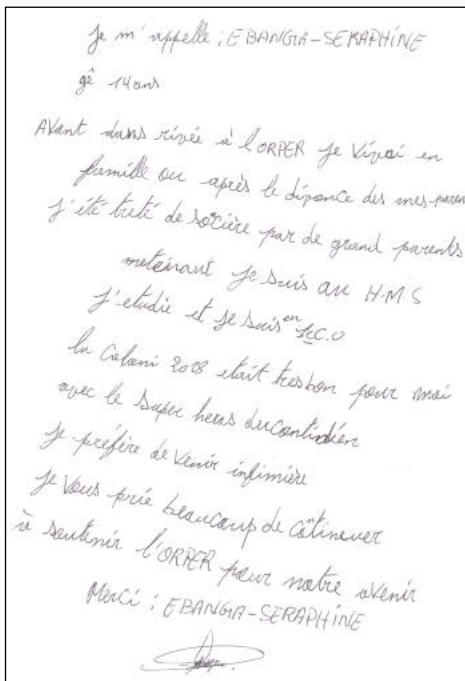 Je m'appelle : EBANGIA-SERAPHINE
gê 14 ans
AVant dans rivée à l'ORPER je Vivai en
famille ou après le divonce des mes-paren
j'été treté de sorière par de grand parents
meteinant je suis au H.M.S
J'etudie et je suis en 1eC.O
la Coloni 2018 etait tresbon pour moi
avec le super heros du
je préfère de venir infimière
je Vous prie beaucoup de côtinever
à soutenir l'ORPER pour notre avenir
Merci : EBANGIA-SERAPHINE